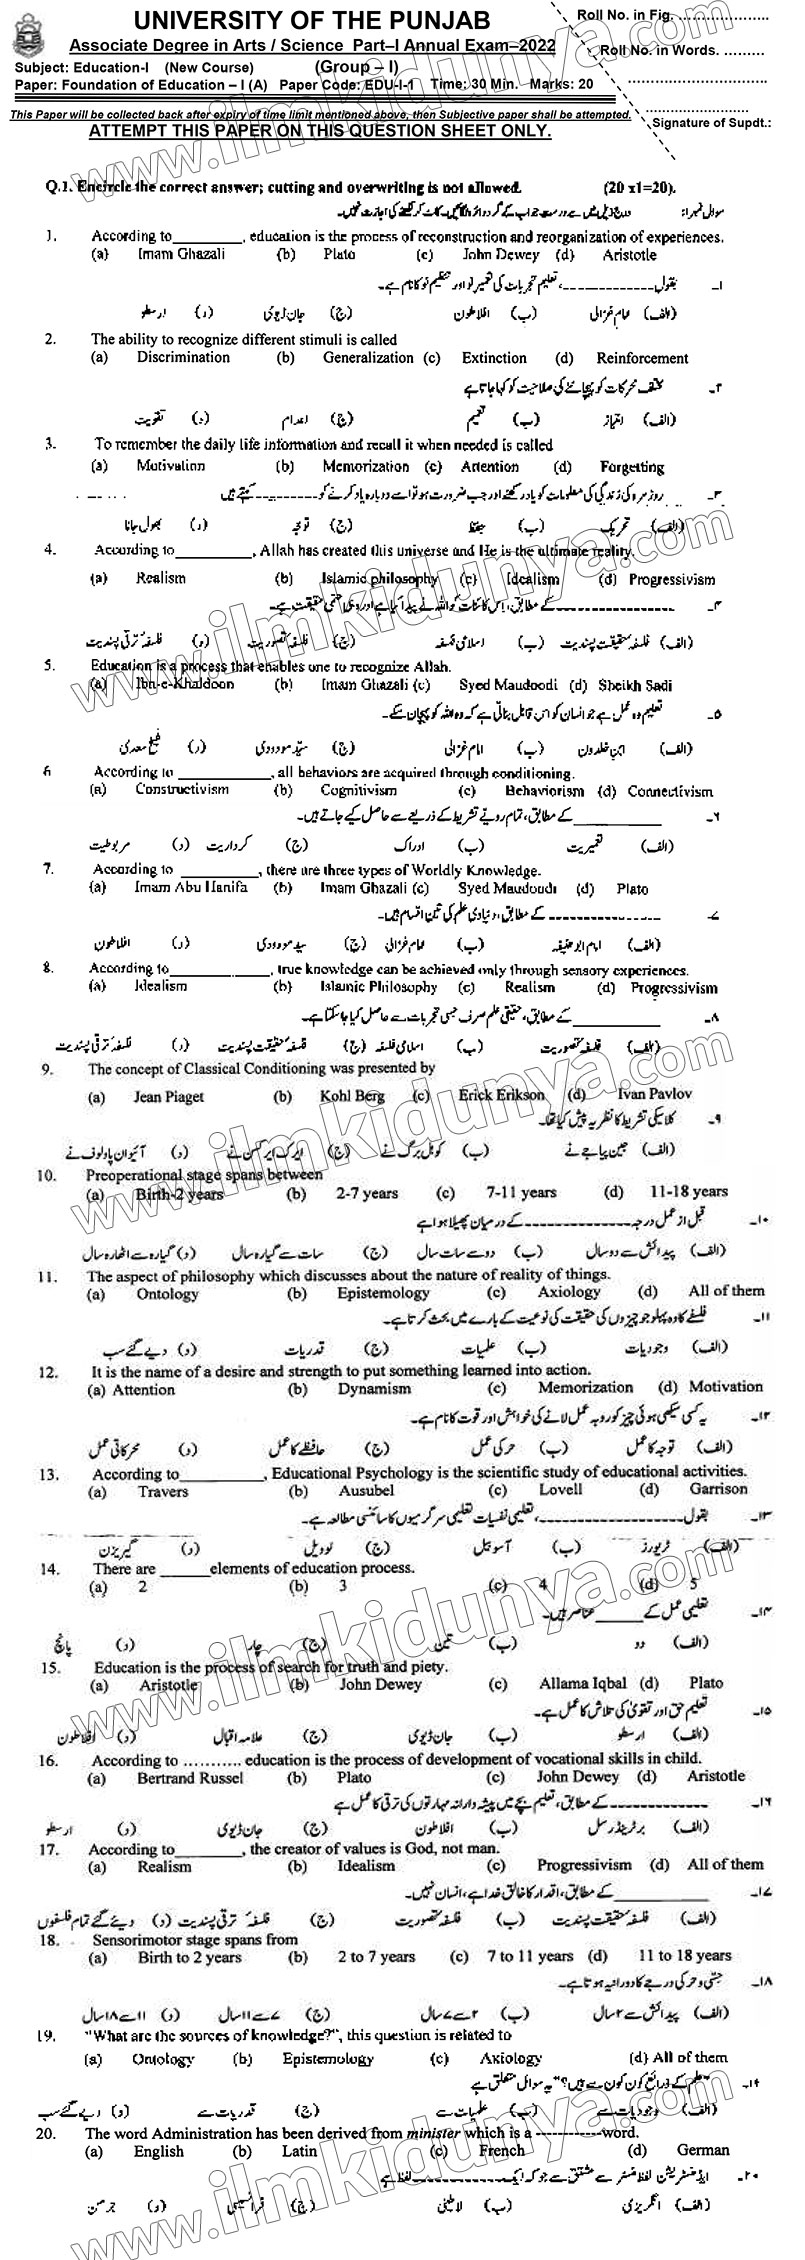 UNIVERSITY OF THE PUNJAB
Roll No. in Fig. ....................
Associate Degree in Arts / Science Part–I Annual Exam–2022
Roll No. in Words. .........
Subject: Education-I (New Course) (Group – I)
Paper: Foundation of Education – I (A) Paper Code: EDU-I-1 Time: 30 Min. Marks: 20
This Paper will be collected back after expiry of time limit mentioned above, then Subjective paper shall be attempted.
Signature of Supdt.:
ATTEMPT THIS PAPER ON THIS QUESTION SHEET ONLY.
Q.1. Encircle the correct answer; cutting and overwriting is not allowed. (20 x1=20).
سوال نمبر ا: درج ذیل میں سے درست جواب کے گرد دائرہ لگائیں۔ کاٹ کر لکھنے کی اجازت نہیں۔
1. According to________, education is the process of reconstruction and reorganization of experiences.
(a) Imam Ghazali (b) Plato (c) John Dewey (d) Aristotle
۱۔ بقول -------------، تعلیم تجربات کی تعمیر نو اور تنظیم نو کا نام ہے۔
(الف) امام غزالی (ب) افلاطون (ج) جان ڈیوی (د) ارسطو
2. The ability to recognize different stimuli is called
(a) Discrimination (b) Generalization (c) Extinction (d) Reinforcement
۲۔ مختلف محرکات کو پہچاننے کی صلاحیت کو کہا جاتا ہے
(الف) امتیاز (ب) تعمیم (ج) اعدام (د) تقویت
3. To remember the daily life information and recall it when needed is called
(a) Motivation (b) Memorization (c) Attention (d) Forgetting
۳۔ روزمرہ کی زندگی کی معلومات کو یاد رکھنے اور جب ضرورت ہو تو اسے دوبارہ یاد کرنے کو---------- کہتے ہیں
(الف) تحریک (ب) حفظ (ج) توجہ (د) بھول جانا
4. According to_________, Allah has created this universe and He is the ultimate reality.
(a) Realism (b) Islamic philosophy (c) Idealism (d) Progressivism
۴۔ ------------------ کے مطابق، اس کائنات کو اللہ نے پیدا کیا ہے اور وہی حتمی حقیقت ہے۔
(الف) فلسفہ حقیقت پسندیت (ب) اسلامی فلسفہ (ج) فلسفہ تصوریت (د) فلسفہ ترقی پسندیت
5. Education is a process that enables one to recognize Allah.
(a) Ibn-e-Khaldoon (b) Imam Ghazali (c) Syed Maudoodi (d) Sheikh Sadi
۵۔ تعلیم وہ عمل ہے جو انسان کو اس قابل بناتی ہے کہ وہ اللہ کو پہچان سکے۔
(الف) ابن خلدون (ب) امام غزالی (ج) سیّد مودودی (د) شیخ سعدی
6 According to __________, all behaviors are acquired through conditioning.
(a) Constructivism (b) Cognitivism (c) Behaviorism (d) Connectivism
۶۔ __________ کے مطابق، تمام رویے تشریط کے ذریعے سے حاصل کیے جاتے ہیں۔
(الف) تعمیریت (ب) ادراک (ج) کرداریت (د) مربوطیت
7. According to _________, there are three types of Worldly Knowledge.
(a) Imam Abu Hanifa (b) Imam Ghazali (c) Syed Maudoudi (d) Plato
۷۔ ---------------- کے مطابق، دنیاوی علم کی تین اقسام ہیں۔
(الف) امام ابو حنیفہ (ب) امام غزالی (ج) سید مودودی (د) افلاطون
8. According to___________, true knowledge can be achieved only through sensory experiences.
(a) Idealism (b) Islamic Philosophy (c) Realism (d) Progressivism
۸۔ __________ کے مطابق، حقیقی علم صرف حسی تجربات سے حاصل کیا جا سکتا ہے۔
(الف) فلسفہ تصوریت (ب) اسلامی فلسفہ (ج) فلسفہ حقیقت پسندیت (د) فلسفہ ترقی پسندیت
9. The concept of Classical Conditioning was presented by
(a) Jean Piaget (b) Kohl Berg (c) Erick Erikson (d) Ivan Pavlov
۹۔ کلاسیکی تشریط کا نظریہ پیش کیا تھا۔
(الف) جین پیاجے نے (ب) کوہل برگ نے (ج) ایرک ایرکسن نے (د) آئیوان پاولوف نے
10. Preoperational stage spans between
(a) Birth-2 years (b) 2-7 years (c) 7-11 years (d) 11-18 years
۱۰۔ قبل از عمل درجہ--------------- کے درمیان پھیلا ہوا ہے
(الف) پیدائش سے دو سال (ب) دو سے سات سال (ج) سات سے گیارہ سال (د) گیارہ سے اٹھارہ سال
11. The aspect of philosophy which discusses about the nature of reality of things.
(a) Ontology (b) Epistemology (c) Axiology (d) All of them
۱۱۔ فلسفے کا وہ پہلو جو چیزوں کی حقیقت کی نوعیت کے بارے میں بحث کرتا ہے۔
(الف) وجودیات (ب) علمیات (ج) قدریات (د) دیے گئے سب
12. It is the name of a desire and strength to put something learned into action.
(a) Attention (b) Dynamism (c) Memorization (d) Motivation
۱۲۔ یہ کسی سیکھی ہوئی چیز کو روبہ عمل لانے کی خواہش اور قوت کا نام ہے۔
(الف) توجہ کا عمل (ب) حرکی عمل (ج) حافظے کا عمل (د) محرکاتی عمل
13. According to_________, Educational Psychology is the scientific study of educational activities.
(a) Travers (b) Ausubel (c) Lovell (d) Garrison
۱۳۔ بقول---------------------، تعلیمی نفسیات تعلیمی سرگرمیوں کا سائنسی مطالعہ ہے۔
(الف) ٹریورز (ب) آسوبیل (ج) لوویل (د) گیریزن
14. There are ______elements of education process.
(a) 2 (b) 3 (c) 4 (d) 5
۱۴۔ تعلیمی عمل کے ______ عناصر ہیں۔
(الف) دو (ب) تین (ج) چار (د) پانچ
15. Education is the process of search for truth and piety.
(a) Aristotle (b) John Dewey (c) Allama Iqbal (d) Plato
۱۵۔ تعلیم حق اور تقویٰ کی تلاش کا عمل ہے۔
(الف) ارسطو (ب) جان ڈیوی (ج) علامہ اقبال (د) افلاطون
16. According to ........... education is the process of development of vocational skills in child.
(a) Bertrand Russel (b) Plato (c) John Dewey (d) Aristotle
۱۶۔ ------------- کے مطابق، تعلیم بچے میں پیشہ وارانہ مہارتوں کی ترقی کا عمل ہے
(الف) برٹرینڈ رسل (ب) افلاطون (ج) جان ڈیوی (د) ارسطو
17. According to________, the creator of values is God, not man.
(a) Realism (b) Idealism (c) Progressivism (d) All of them
۱۷۔ __________ کے مطابق، اقدار کا خالق خدا ہے، انسان نہیں۔
(الف) فلسفہ حقیقت پسندیت (ب) فلسفہ تصوریت (ج) فلسفہ ترقی پسندیت (د) دیئے گئے تمام فلسفوں
18. Sensorimotor stage spans from
(a) Birth to 2 years (b) 2 to 7 years (c) 7 to 11 years (d) 11 to 18 years
۱۸۔ حسّی و حرکی درجے کا دورانیہ ہوتا ہے۔
(الف) پیدائش سے ۲ سال (ب) ۲ سے ۷ سال (ج) ۷ سے ۱۱ سال (د) ۱۱ سے ۱۸ سال
19. "What are the sources of knowledge?", this question is related to
(a) Ontology (b) Epistemology (c) Axiology (d) All of them
۱۹۔ "علم کے ذرائع کون کون سے ہیں؟" یہ سوال متعلق ہے
(الف) وجودیات سے (ب) علمیات سے (ج) قدریات سے (د) دیے گئے سب
20. The word Administration has been derived from minister which is a -----------word.
(a) English (b) Latin (c) French (d) German
۲۰۔ ایڈمنسٹریشن لفظ منسٹر سے مشتق ہے جو کہ ایک-------------- لفظ ہے
(الف) انگریزی (ب) لاطینی (ج) فرانسیسی (د) جرمن
www.ilmkidunya.com
www.ilmkidunya.com
www.ilmkidunya.com
www.ilmkidunya.com
www.ilmkidunya.com